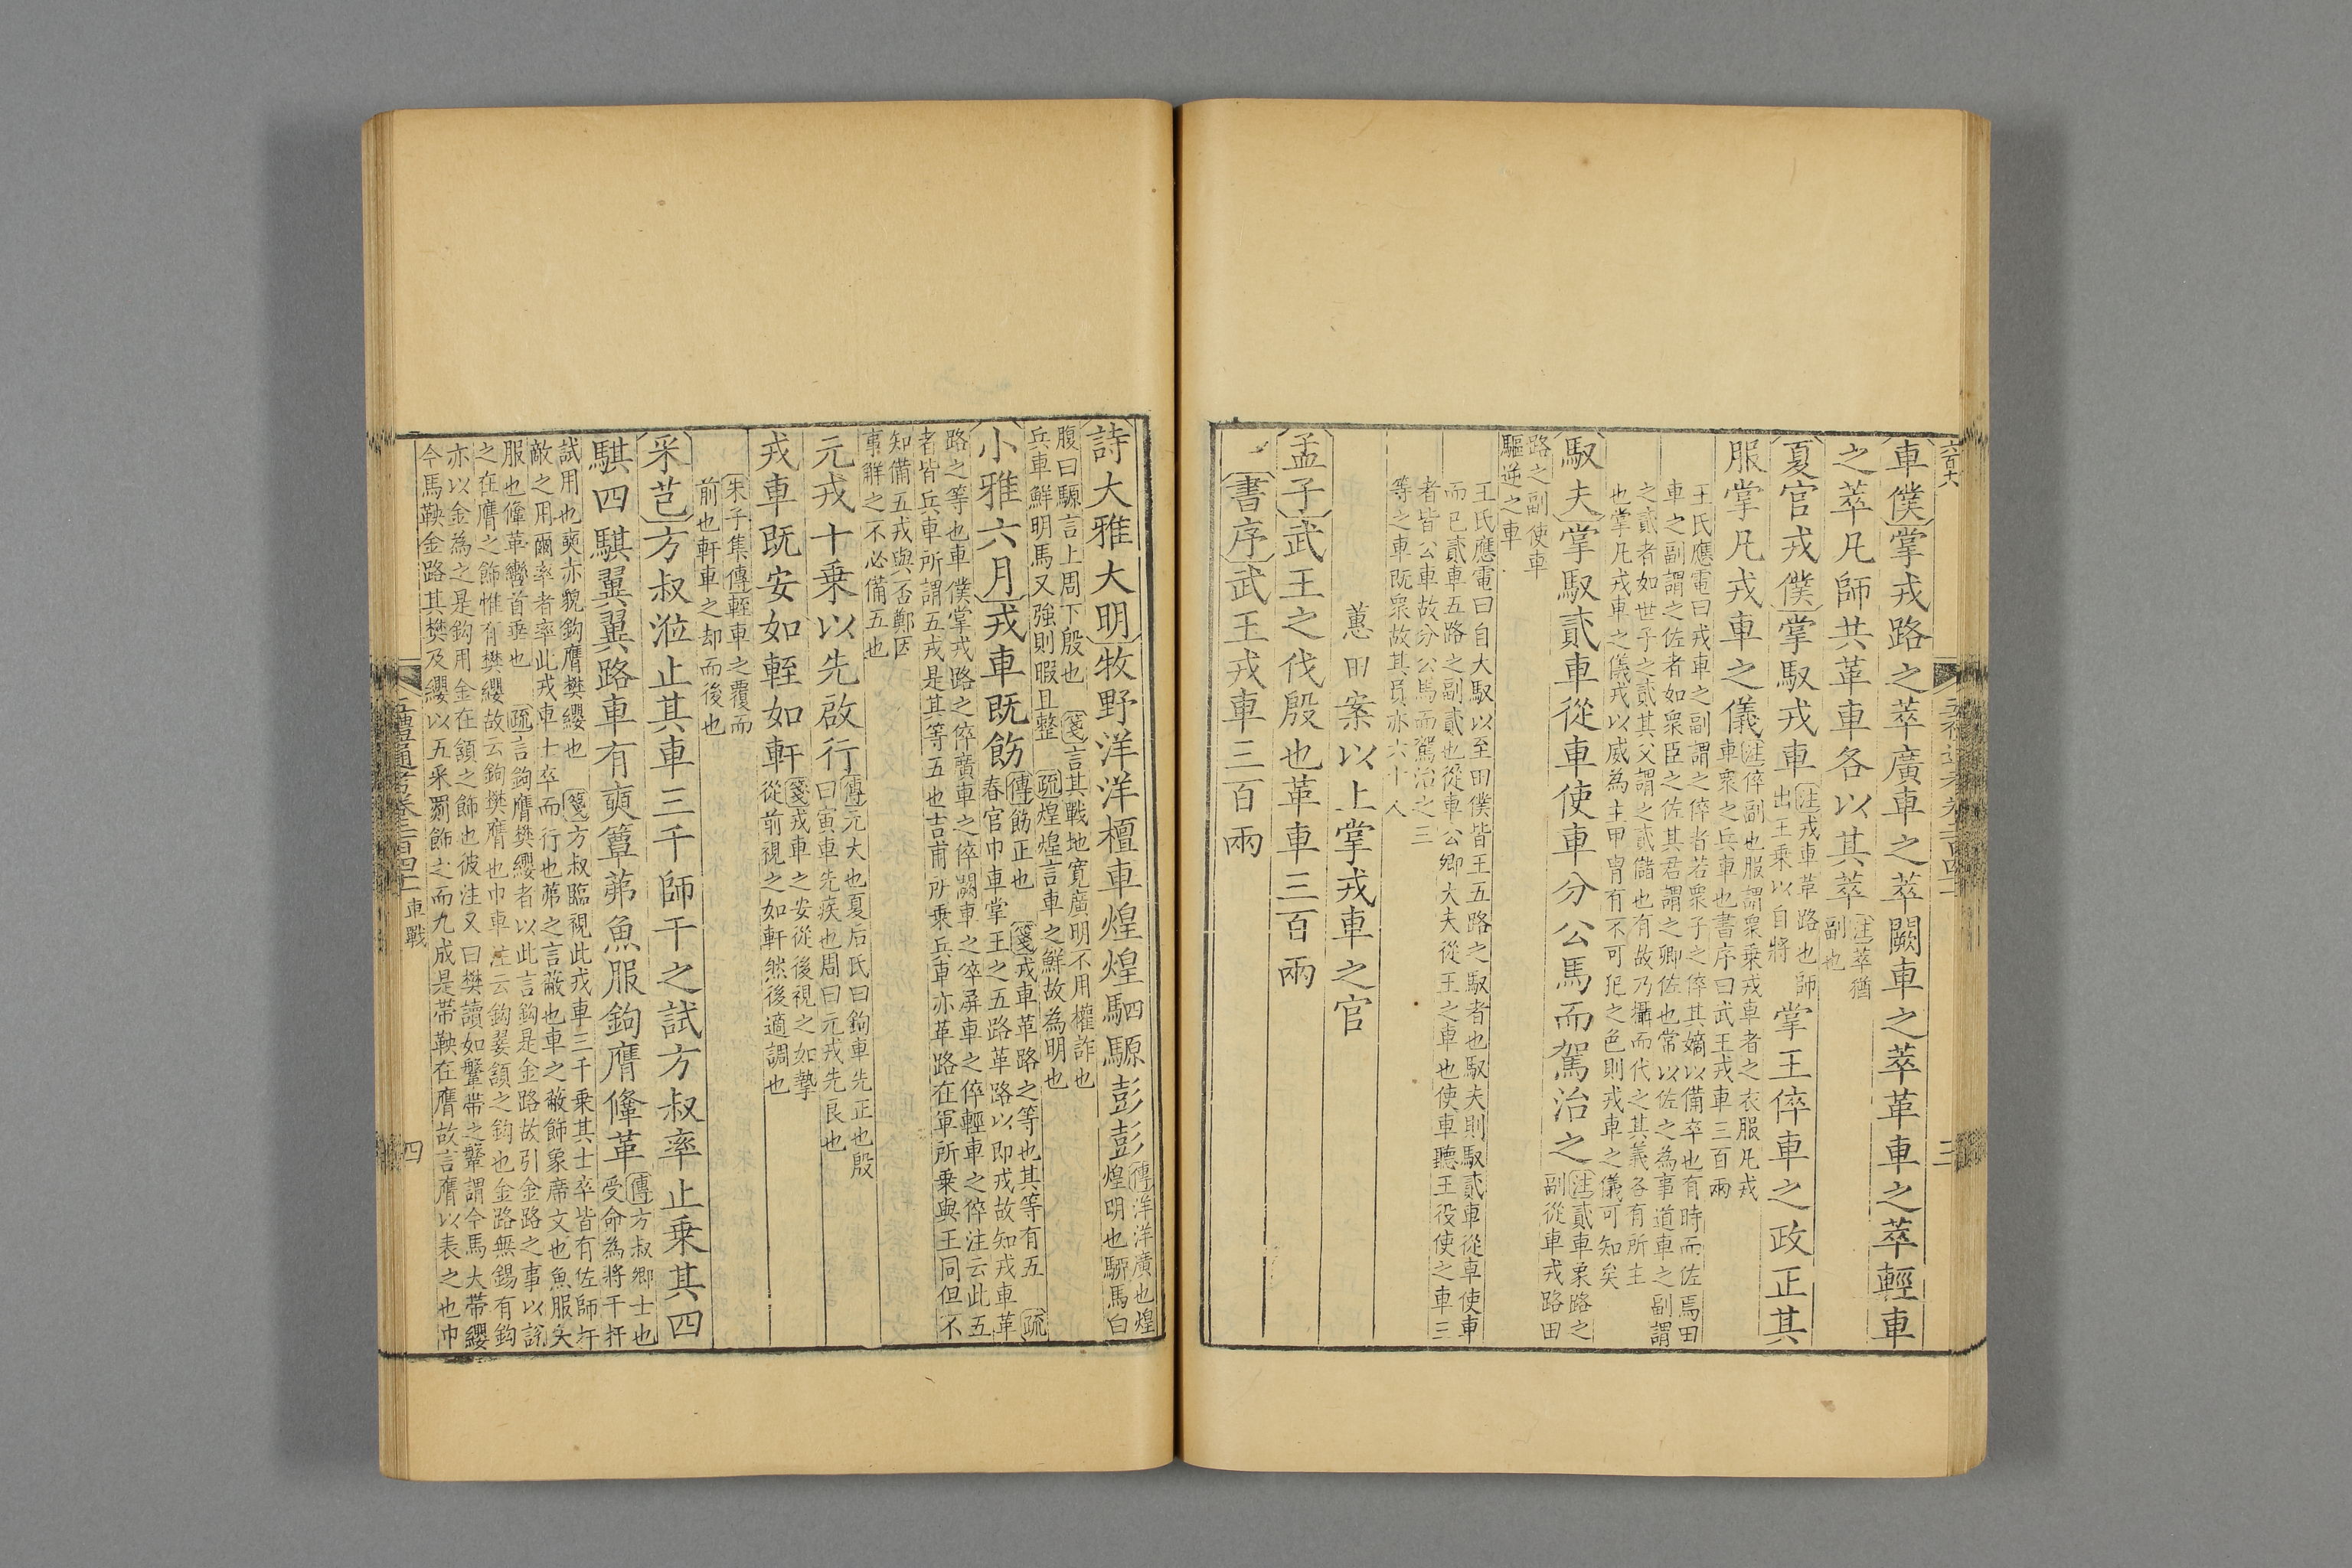 車僕掌戎路之萃廣車之萃闕車之萃革車之萃輕車
之萃凡師共革車各以其萃
注萃猶
副也
夏官戎僕掌馭戎車
注戎車革路也師
出王乘以自將
掌王倅車之政正其
服掌凡戎車之儀
注倅副也服謂衆乘戎車者之衣服凡戎
車衆之兵車也書序曰武王戎車三百兩
王氏應電曰戎車之副謂之倅者若衆子之倅其嫡以備卒也有時而佐焉田
車之副謂之佐者如衆臣之佐其君謂之卿佐也常以佐之為事道車之副謂
之貳者如世子之貳其父謂之貳儲也有故乃攝而代之其義各有所主
也掌凡戎車之儀戎以威為主甲冑有不可犯之色則戎車之儀可知矣
馭夫掌馭貳車從車使車分公馬而駕治之
注貳車象路之
副從車戎路田
路之副使車
驅逆之車
王氏應電曰自大馭以至田僕皆王五路之馭者也馭夫則馭貳車從車使車
而已貳車五路之副貳也從車公卿大夫從王之車也使車聽王役使之車三
者皆公車故分公馬而駕治之三
等之車既衆故其員亦六十人
蕙田案以上掌戎車之官
孟子武王之伐殷也革車三百兩
書序武王戎車三百兩
詩大雅大明牧野洋洋檀車煌煌駟騵彭彭
傳洋洋廣也煌
煌明也駵馬白
腹曰騵言上周下殷也 箋言其戰地寛廣明不用權詐也
兵車鮮明馬又強則暇且整 疏煌煌言車之鮮故為明也
小雅六月戎車既飭
傳飭正也 箋戎車革路之等也其等有五 疏
春官巾車掌王之五路革路以即戎故知戎車革
路之等也車僕掌戎路之倅廣車之倅闕車之倅屏車之倅輕車之倅注云此五
者皆兵車所謂五戎是其等五也吉甫所乘兵車亦革路在軍所乘與王同但不
知備五戎與否鄭因
事解之不必備五也
元戎十乘以先啟行
傳元大也夏后氏曰鉤車先正也殷
曰寅車先疾也周曰元戎先良也
戎車既安如輊如軒
箋戎車之安從後視之如摯
從前視之如軒然後適調也
朱子集傳輊車之覆而
前也軒車之却而後也
采芑方叔涖止其車三千師干之試方叔率止乘其四
騏四騏翼翼路車有奭簟茀魚服鉤膺鞗革
傳方叔卿士也
受命為將干扞
試用也奭赤貌鉤膺樊纓也 箋方叔臨視此戎車三千乘其士卒皆有佐師扞
敵之用爾率者率此戎車士卒而行也茀之言蔽也車之蔽飾象席文也魚服矢
服也鞗革轡首垂也 疏言鉤膺樊纓者以此言鉤是金路故引金路之事以說
之在膺之飾惟有樊纓故云鉤樊膺也巾車注云鉤婁頷之鉤也金路無錫有鉤
亦以金為之是鉤用金在頷之飾也彼注又曰樊讀如鞶帶之鞶謂今馬大帶纓
今馬鞅金路其樊及纓以五采罽飾之而九成是帶鞅在膺故言膺以表之也巾
五禮通考卷二百四十一 車戰
四